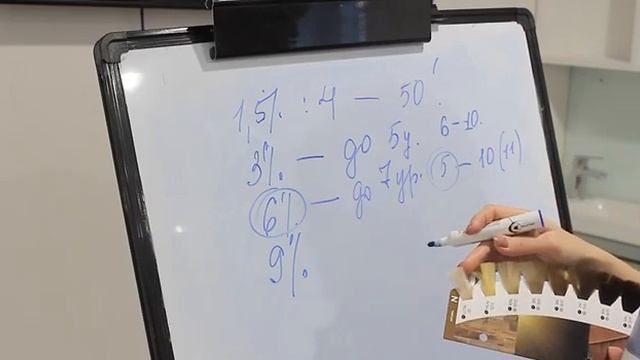 1,5% : 4 — 50'
3% — до 5у. 6-10.
6% — до 7ур. 5 - 10 (11)
9%.
N